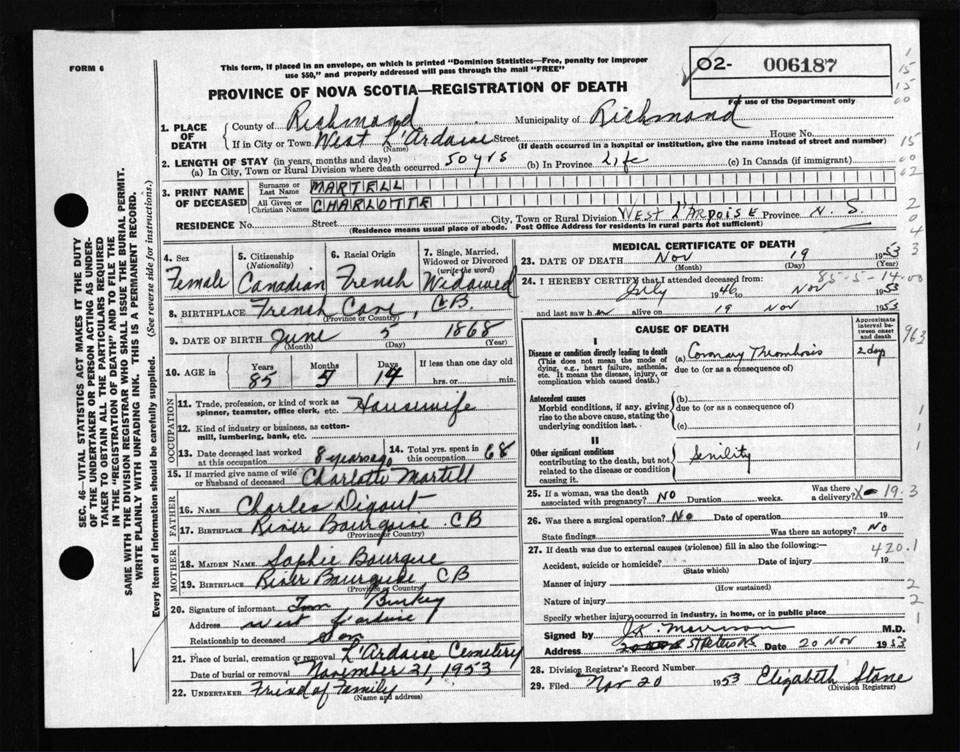 FORM 6
This form, if placed in an envelope, on which is printed "Dominion Statistics—Free, penalty for improper
use $50," and properly addressed will pass through the mail "FREE"
02- 006187
For use of the Department only
PROVINCE OF NOVA SCOTIA—REGISTRATION OF DEATH
1. PLACE OF DEATH
County of Richmond Municipality of Richmond
If in City or Town West L'Ardoise Street House No.
(Name) (If death occurred in a hospital or institution, give the name instead of street and number)
2. LENGTH OF STAY (in years, months and days)
(a) In City, Town or Rural Division where death occurred 50 yrs (b) In Province Life (c) In Canada (if immigrant)
3. PRINT NAME OF DECEASED
Surname or Last Name MARTELL
All Given or Christian Names CHARLOTTE
RESIDENCE No. Street City, Town or Rural Division WEST L'ARDOISE Province N. S.
(Residence means usual place of abode. Post Office Address for residents in rural parts not sufficient)
4. Sex
Female
5. Citizenship
(Nationality)
Canadian
6. Racial Origin
French
7. Single, Married,
Widowed or Divorced
(write the word)
Widowed
8. BIRTHPLACE French Cove, C.B.
(Province or Country)
9. DATE OF BIRTH June 5 1868
(Month) (Day) (Year)
10. AGE in Years Months Days If less than one day old
85 5 14 hrs. or min.
OCCUPATION
11. Trade, profession, or kind of work as
spinner, teamster, office clerk, etc. Housewife
12. Kind of industry or business, as cotton-
mill, lumbering, bank, etc.
13. Date deceased last worked
at this occupation 8 years ago
14. Total yrs. spent in
this occupation 68
15. If married give name of wife
or husband of deceased Charlotte Martell
FATHER
16. NAME Charles Digout
17. BIRTHPLACE River Bourgeoise CB
(Province or Country)
MOTHER
18. MAIDEN NAME Sophie Bourque
19. BIRTHPLACE River Bourgeoise, CB
(Province or Country)
20. Signature of informant
Address West L'ardoise
Relationship to deceased Son
21. Place of burial, cremation or removal L'Ardoise Cemetery
Date of burial or removal November 21, 1953
22. UNDERTAKER Friend of Family
(Name and address)
MEDICAL CERTIFICATE OF DEATH
23. DATE OF DEATH Nov 19 1953
(Month) (Day) (Year)
85-5-14-00
24. I HEREBY CERTIFY that I attended deceased from:
July 1946 to Nov 1953
and last saw her alive on 19 Nov 1953
CAUSE OF DEATH
Approximate
interval be-
tween onset
and death
I
Disease or condition directly leading to death
(This does not mean the mode of
dying, e.g., heart failure, asthenia,
etc. It means the disease, injury, or
complication which caused death.)
(a) Coronary Thrombosis 2 days
due to (or as a consequence of)
Antecedent causes
Morbid conditions, if any, giving
rise to the above cause, stating the
underlying condition last.
(b)
due to (or as a consequence of)
(c)
II
Other significant conditions
contributing to the death, but not
related to the disease or condition
causing it.
Senility
25. If a woman, was the death
associated with pregnancy? NO Duration weeks. Was there
a delivery?
26. Was there a surgical operation? No Date of operation 19
State findings Was there an autopsy? No
27. If death was due to external causes (violence) fill in also the following:— 420.1
Accident, suicide or homicide? Date of injury 19
(State which)
Manner of injury
(How sustained)
Nature of injury
Specify whether injury occurred in industry, in home, or in public place
Signed by M.D.
Address St Peters NS Date 20 Nov 1953
28. Division Registrar's Record Number
29. Filed Nov 20 1953 Elizabeth Stone
(Division Registrar)
SEC. 46—VITAL STATISTICS ACT MAKES IT THE DUTY
OF THE UNDERTAKER OR PERSON ACTING AS UNDER-
TAKER TO OBTAIN ALL THE PARTICULARS REQUIRED
IN THE "REGISTRATION OF DEATH" AND TO FILE THE
SAME WITH THE DIVISION REGISTRAR WHO SHALL ISSUE THE BURIAL PERMIT.
WRITE PLAINLY WITH UNFADING INK. THIS IS A PERMANENT RECORD.
Every item of information should be carefully supplied. (See reverse side for instructions.)